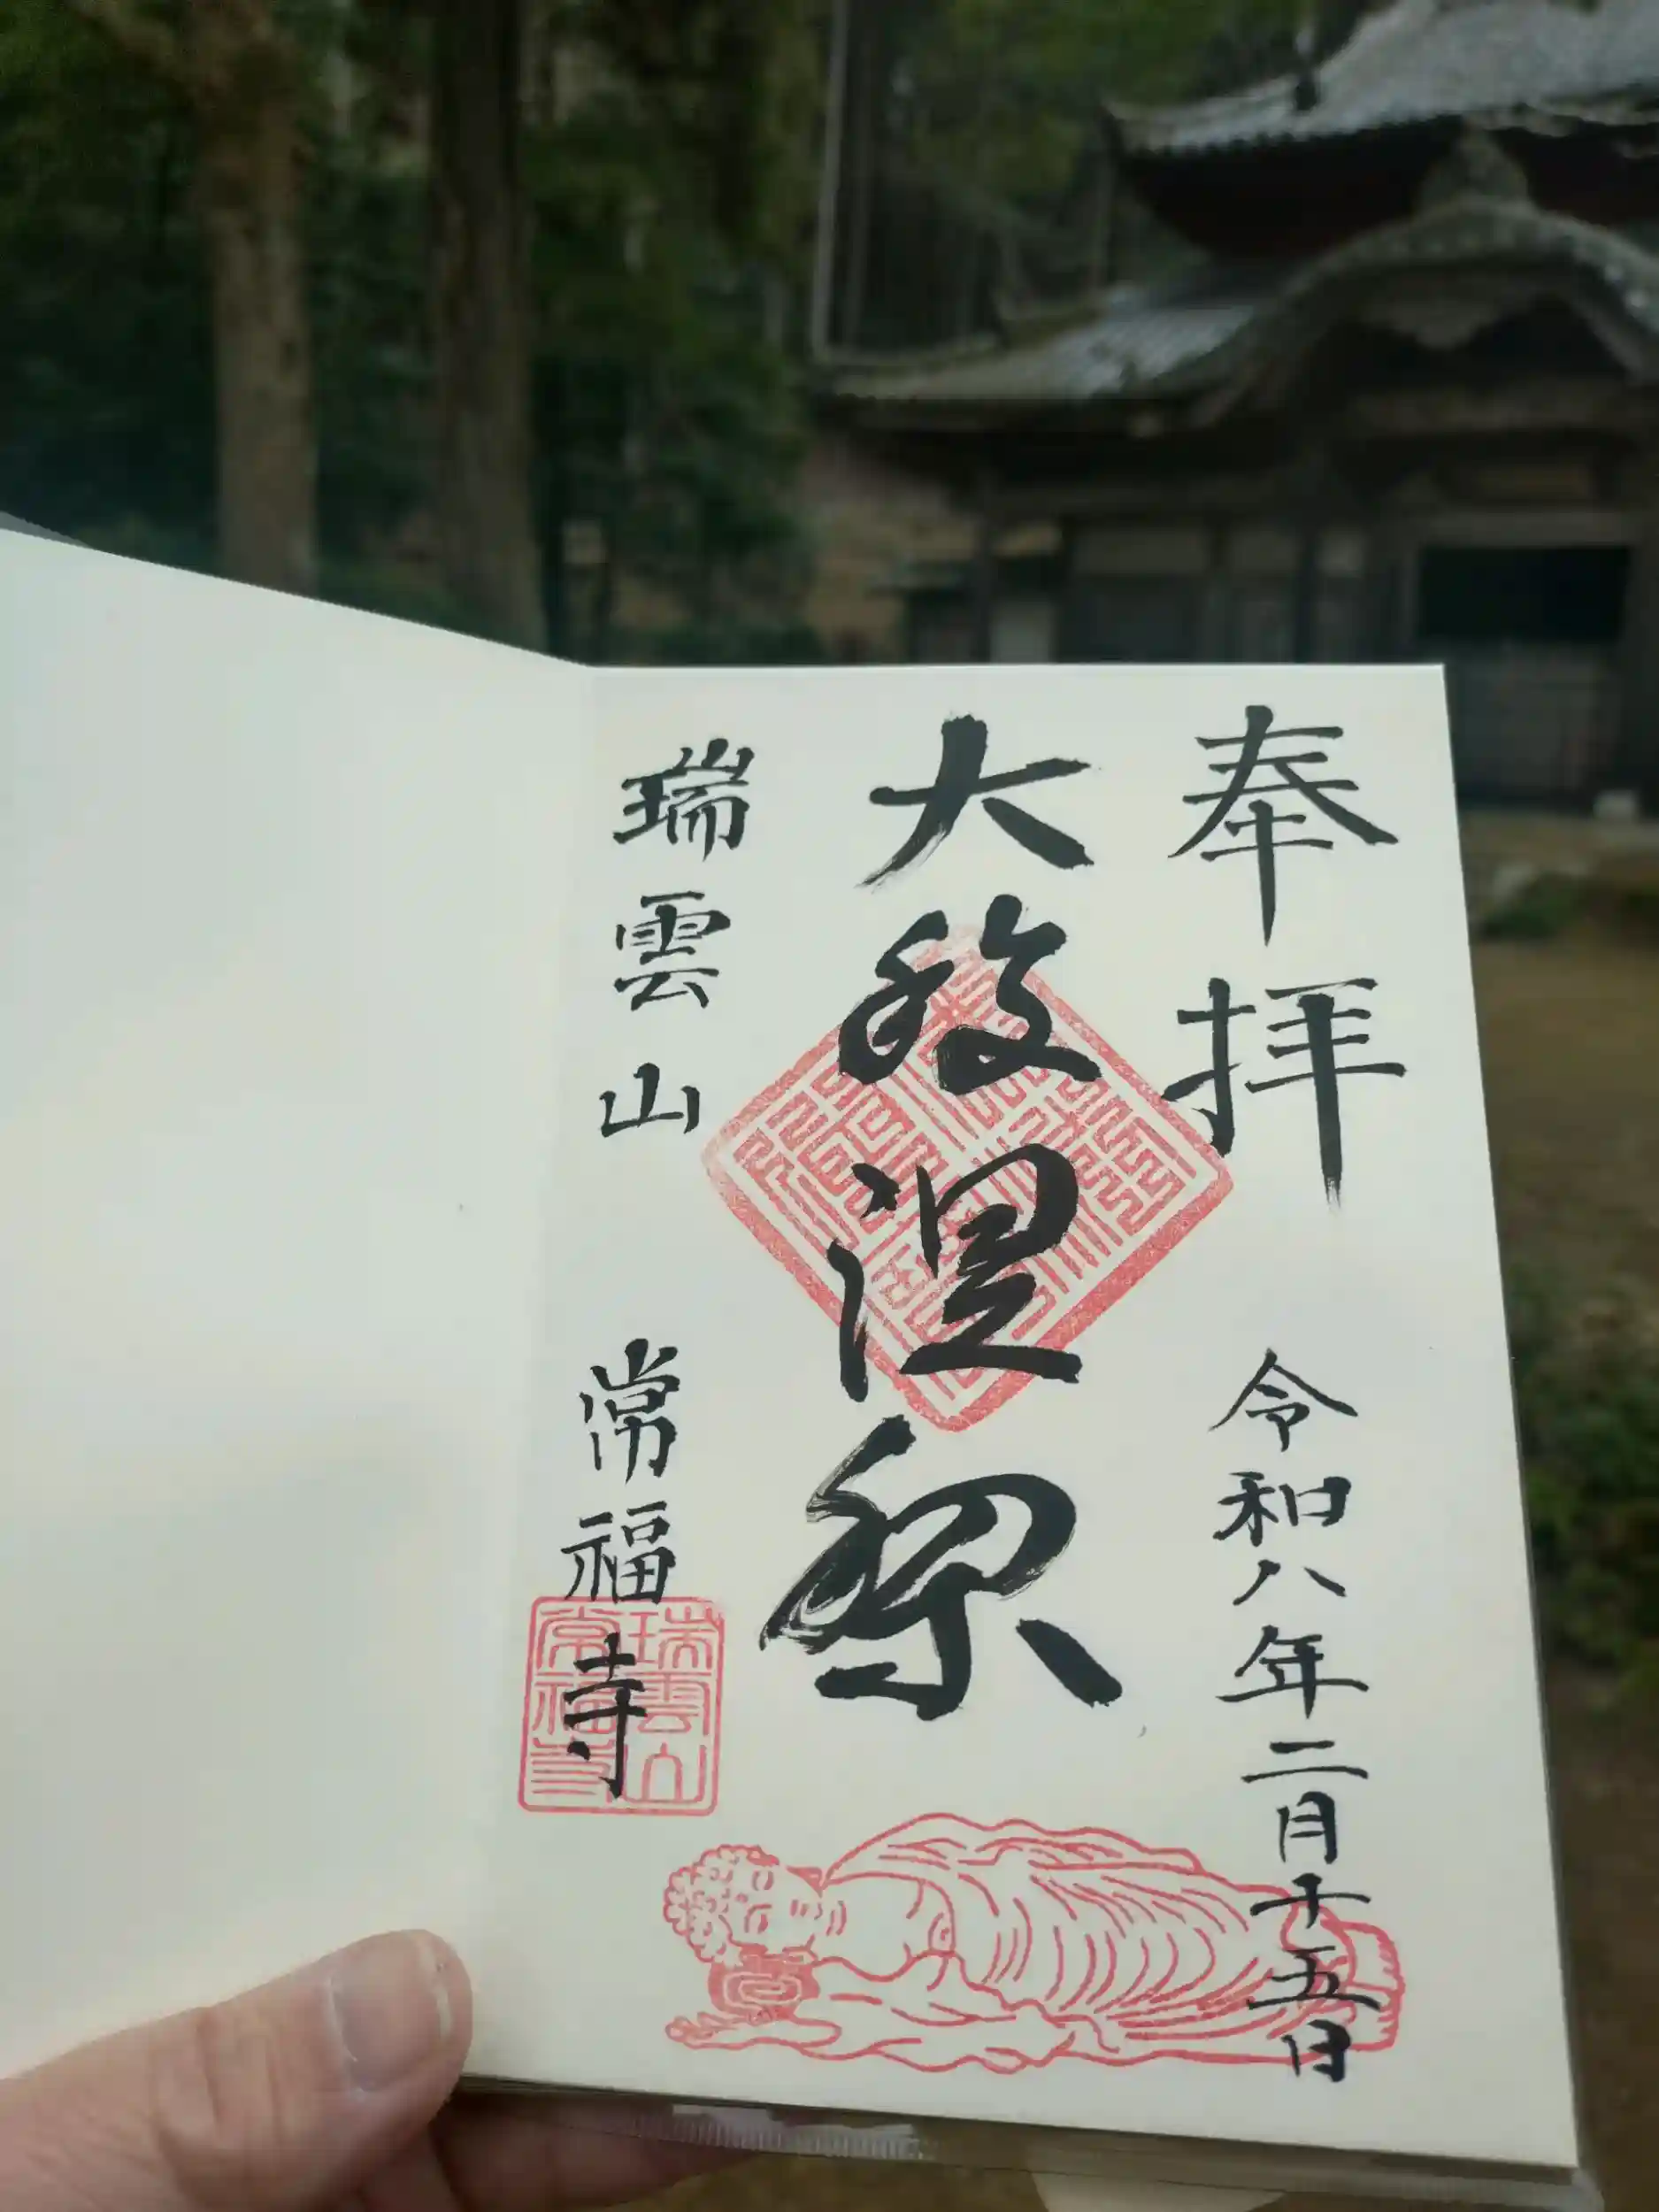 奉拝
令和八年二月十五日
大般涅槃
瑞雲山 常福寺
瑞雲山
常福寺